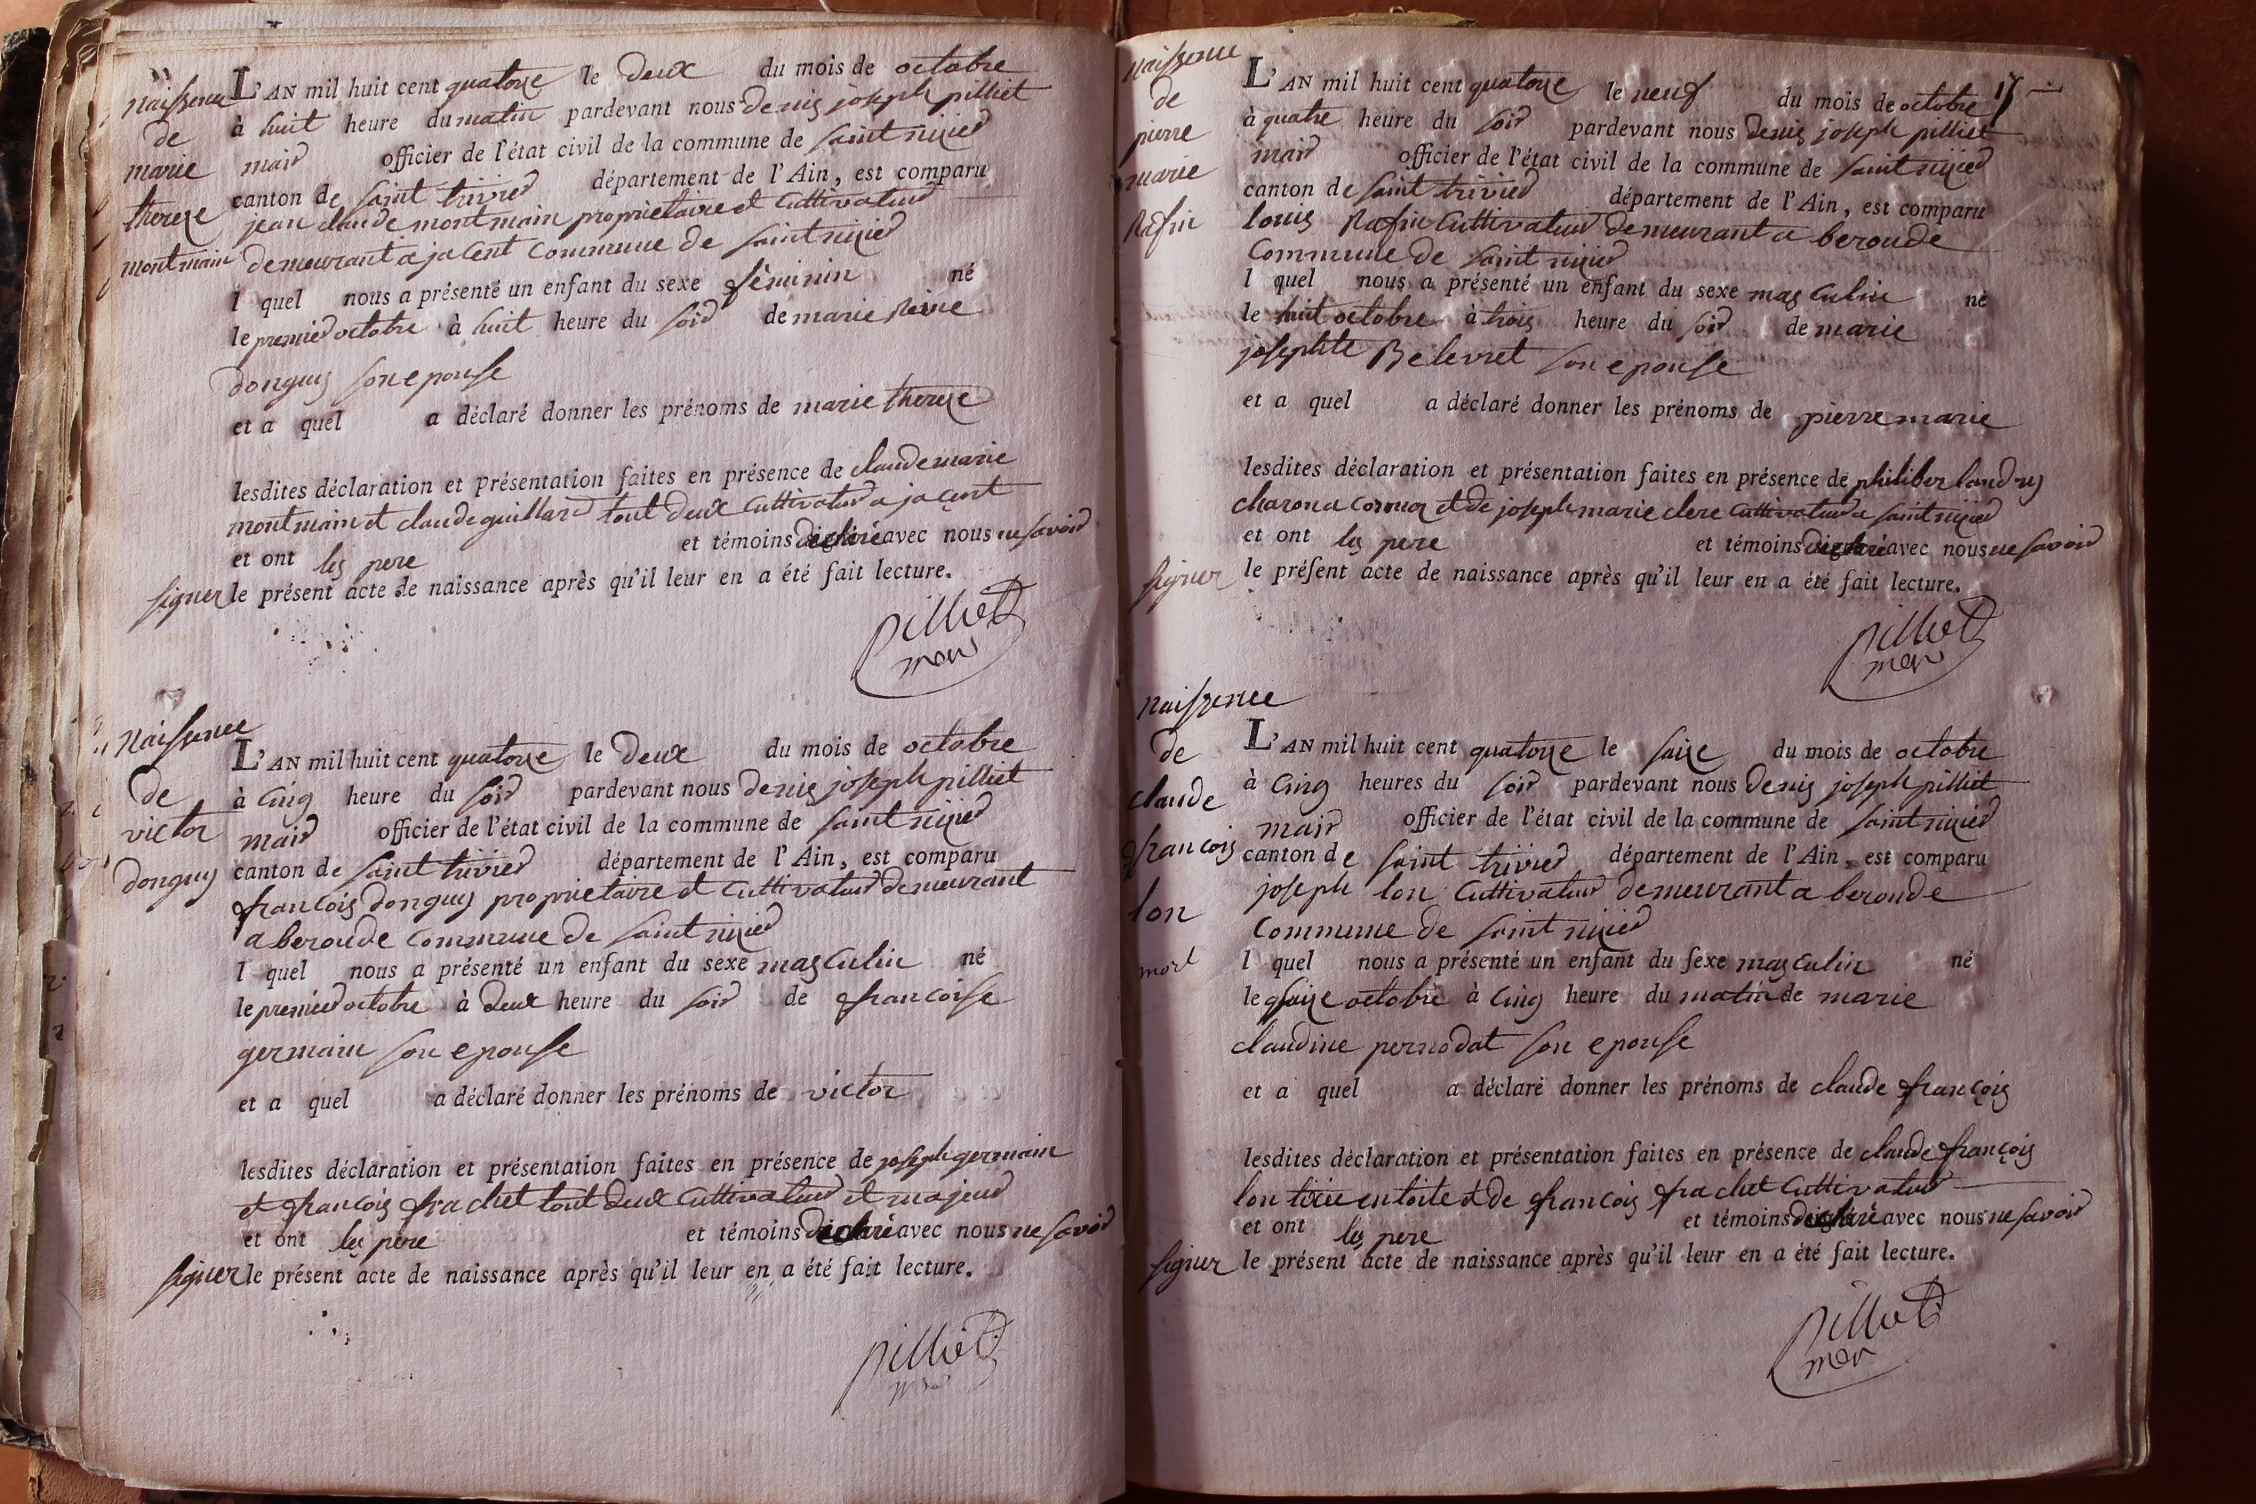 naissence
de
marie
thereze
montmain
L'AN mil huit cent quatorze le deux du mois de octobre
à huit heure du matin pardevant nous denis joseph pilliet
mair officier de l'état civil de la commune de saint nizier
canton de saint trivier département de l'Ain, est comparu
jean claude montmain proprietaire et Cultivateur
demeurant a jacent commune de saint nizier
l quel nous a présenté un enfant du sexe féminin né
le premier octobre à huit heure du soir de marie Reine
donguy son epouse
et a quel a déclaré donner les prénoms de marie thereze
lesdites déclaration et présentation faites en présence de claude marie
montmain et claude guillard tout deux cultivateur a jacent
et ont les pere et témoins déclaré avec nous ne savoir
signer le présent acte de naissance après qu'il leur en a été fait lecture.
pilliet
mair
Naissence
de
victor
donguy
L'AN mil huit cent quatorze le deux du mois de octobre
à Cinq heure du soir pardevant nous denis joseph pilliet
mair officier de l'état civil de la commune de saint nizier
canton de saint trivier département de l'Ain, est comparu
françois donguy proprietaire et cultivateur demeurant
a beroude commune de saint nizier
l quel nous a présenté un enfant du sexe masculin né
le premier octobre à deux heure du soir de francoise
germain son epouse
et a quel a déclaré donner les prénoms de victor
lesdites déclaration et présentation faites en présence de joseph germain
et françois frachet tout deux Cultivateur et majeur
et ont les père et témoins déclaré avec nous ne savoir
signer le présent acte de naissance après qu'il leur en a été fait lecture.
pilliet
17
naissence
de
pierre
marie
Rafin
L'AN mil huit cent quatorze le neuf du mois de octobre
à quatre heure du soir pardevant nous denis joseph pilliet
mair officier de l'état civil de la commune de saint nizier
canton de saint trivier département de l'Ain, est comparu
louis Rafin Cultivateur demeurant a beroude
commune de saint nizier
l quel nous a présenté un enfant du sexe masculin né
le huit octobre à trois heure du soir de marie
josephte Belevret son epouse
et a quel a déclaré donner les prénoms de pierre marie
lesdites déclaration et présentation faites en présence de philiber landry
charon a cormoz et de joseph marie clere cultivateur a saint nizier
et ont les pere et témoins déclaré avec nous ne savoir
signer le présent acte de naissance après qu'il leur en a été fait lecture.
pilliet
mair
naissence
de
claude
françois
lon
mort
L'AN mil huit cent quatorze le saize du mois de octobre
à Cinq heures du soir pardevant nous Denis joseph pilliet
mair officier de l'état civil de la commune de saint nizier
canton de saint trivier département de l'Ain, est comparu
joseph lon Cultivateur demeurant a beroude
commune de saint nizier
l quel nous a présenté un enfant du sexe masculin né
le saize octobre à Cinq heure du matin de marie
claudine pernodat son epouse
et a quel a déclaré donner les prénoms de claude françois
lesdites déclaration et présentation faites en présence de claude françois
lon et de françois frachet Cultivateur
et ont les pere et témoins déclaré avec nous ne savoir
signer le présent acte de naissance après qu'il leur en a été fait lecture.
pilliet
mair